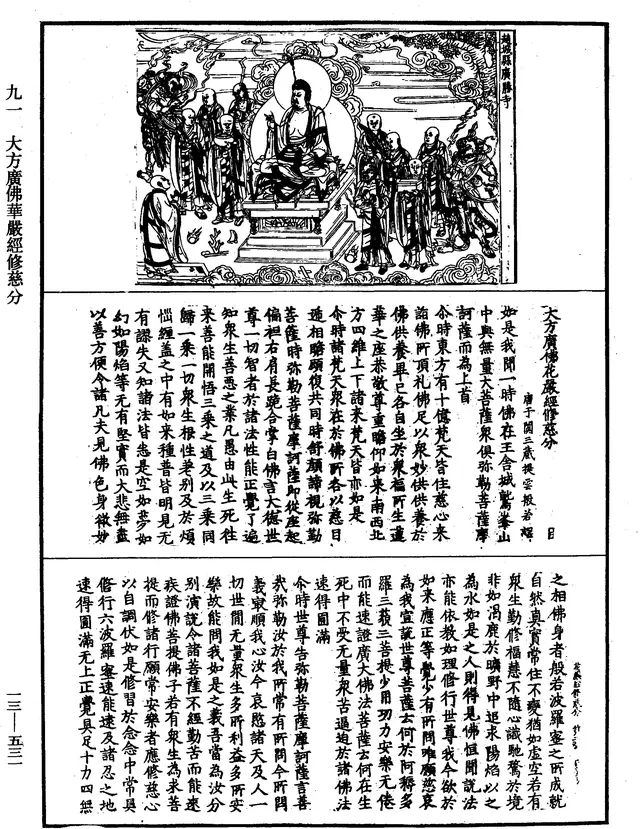 九一 大方廣佛華嚴經修慈分
趙城縣廣勝寺
大方廣佛花嚴經修慈分
唐于闐三藏提雲般若 譯
如是我聞一時佛在王舍城鷲峯山
中與無量大菩薩衆俱弥勒菩薩摩
訶薩而為上首
尒時東方有十億梵天皆住慈心来
詣佛所頂礼佛足以衆妙供供養於
佛供養畢已各自坐於衆福所生蓮
華之座恭敬尊重瞻仰如来南西北
方四維上下諸来梵天皆亦如是
尒時諸梵天衆在於佛所各以慈目
遞相瞻顧復共同時舒顏諦視弥勒
菩薩時弥勒菩薩摩訶薩即從座起
偏袒右肩長跪合掌白佛言大德世
尊一切智者於諸法性能正覺了遍
知衆生善悪之業凡愚由此生死往
来善能開悟三乘之道及以三乘同
歸一乘一切衆生根性老别及於煩
惱纏盖之中有如来種普皆明見无
有謬失又知諸法皆悉是空如夢如
幻如陽焰等无有堅實而大悲無盡
以善方便令諸凡夫見佛色身微妙
之相佛身者般若波羅蜜之所成就
自然真實常住不變猶如虛空若有
衆生勤修福慈不隨心識馳騖於境
非如渴鹿於曠野中追求陽焰以之
為水如是之人則得見佛恒聞說法
亦能依教如理修行世尊我今欲於
如来應正等覺少有所問唯願慈哀
為我宣說世尊菩薩云何於阿耨多
羅三藐三菩提少用功力安樂无倦
而能速證廣大佛法菩薩云何在生
死中不受无量衆苦逼迫於諸佛法
速得圓滿
尒時世尊告弥勒菩薩摩訶薩言善
哉弥勒汝於我所常有所問今所問
義㝡順我心汝今哀愍諸天及人一
切世間无量衆生多所利益多所安
樂故能問我如是之義吾當為汝分
别演說令諸菩薩不經勤苦而能速
疾證佛菩提佛子若有衆生為求菩
提而修諸行願常安樂者應修慈心
以自調伏如是修習於念念中常具
修行六波羅蜜速能速及諸忍之地
速得圓滿无上正覺具足十力四無
一三—五三二